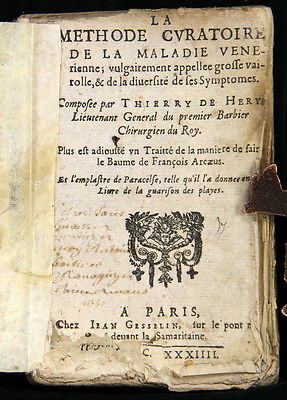 LA
METHODE CVRATOIRE
DE LA MALADIE VENE-
rienne; vulgairement appellee grosse vai-
rolle, & de la diuersité de ses Symptomes.
Composée par THIERRY DE HERY
Lieutenant General du premier Barbier
Chirurgien du Roy.
Plus est adiousté vn Traité de la maniere de fair
le Baume de François Arcæus.
Et l'emplastre de Paracelse, telle qu'il l'a donnee en
Liure de la guarison des playes.
A PARIS,
Chez IEAN GESSELIN, sur le pont
deuant la Samaritaine.
C. XXXIIII.